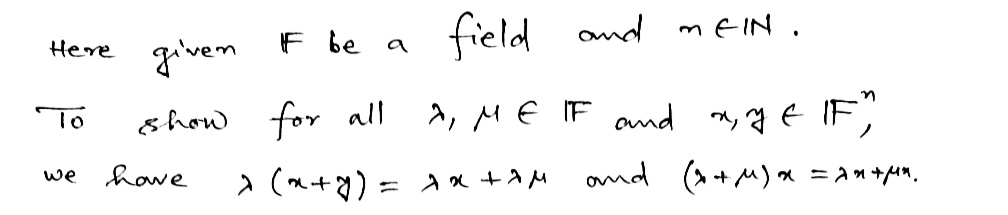 Here given 𝔽 be a field and n ∈ ℕ.
To show for all λ, μ ∈ 𝔽 and x, y ∈ 𝔽ⁿ,
we have λ(x+y) = λx + λμ and (λ+μ)x = λx+μx.